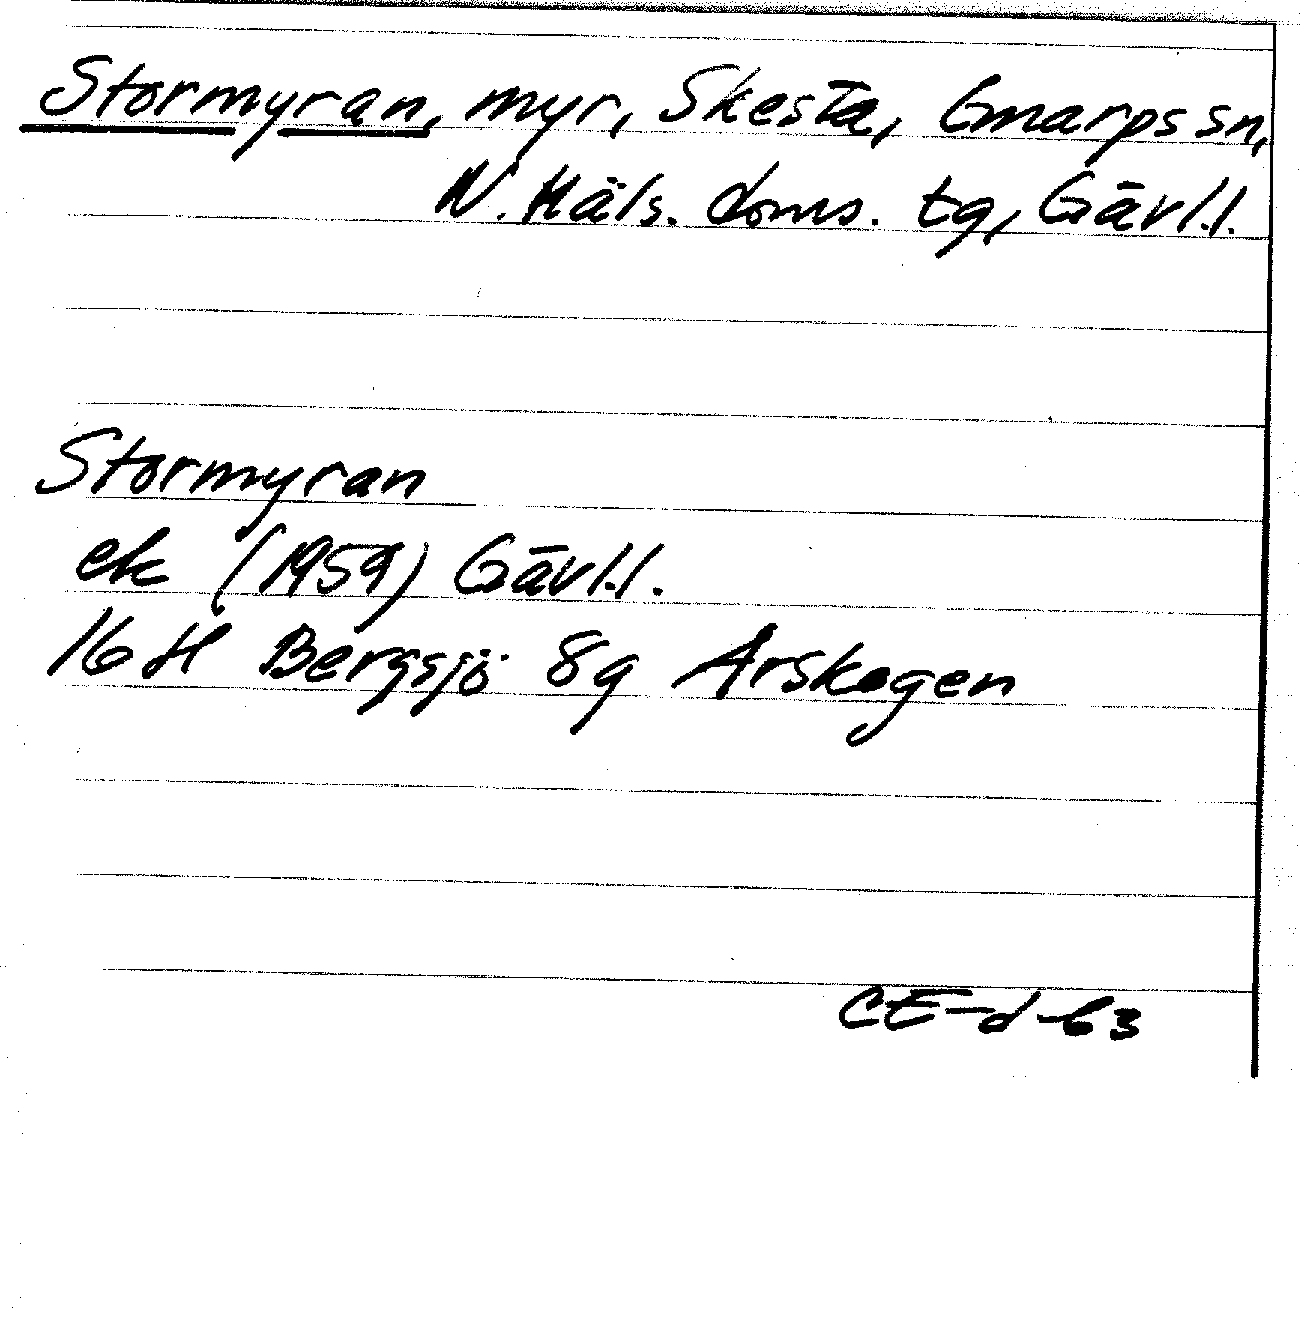 Stormyran, myr, Skesta, Gnarps sn,
N. Häls. doms. tg, Gävl.l.
Stormyran
ek (1959) Gävl.l.
16 H Bergsjö 8g Årskogen
CE-d-63